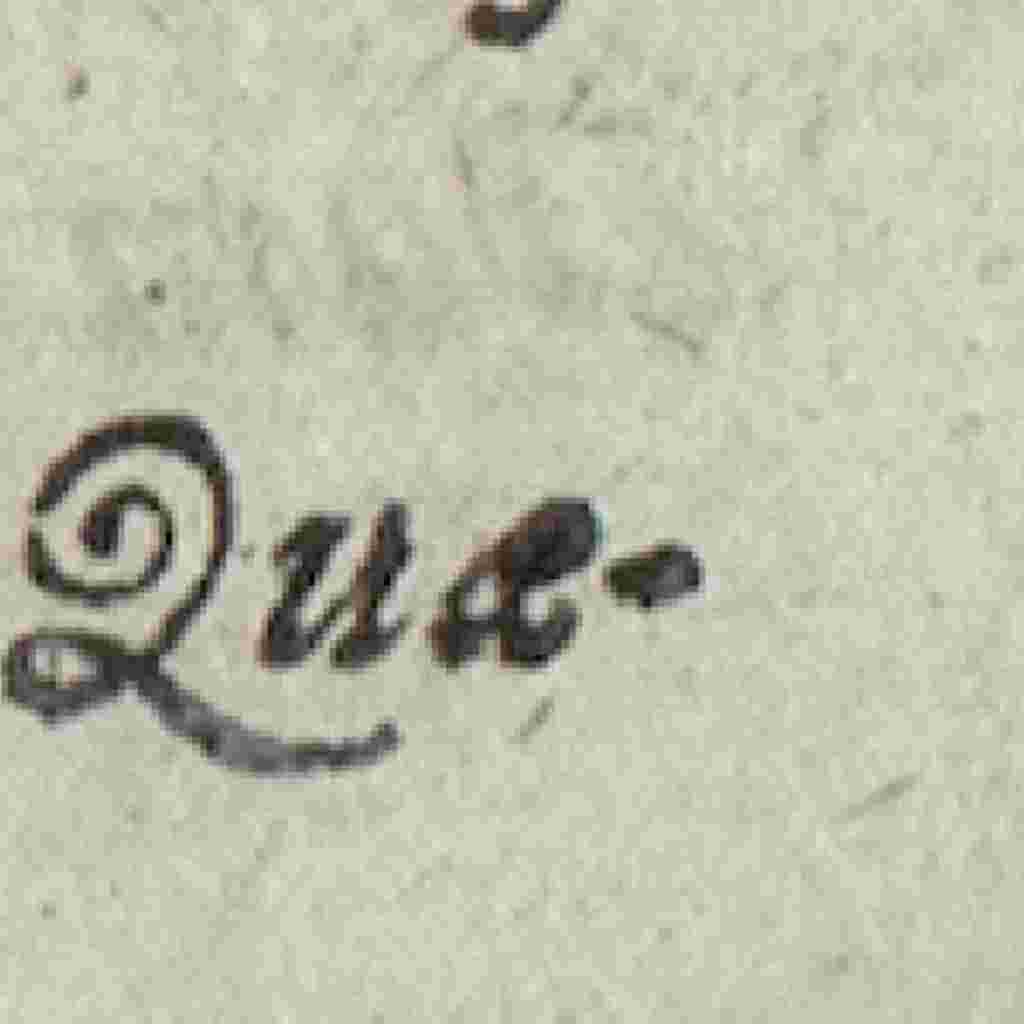 Quæ-